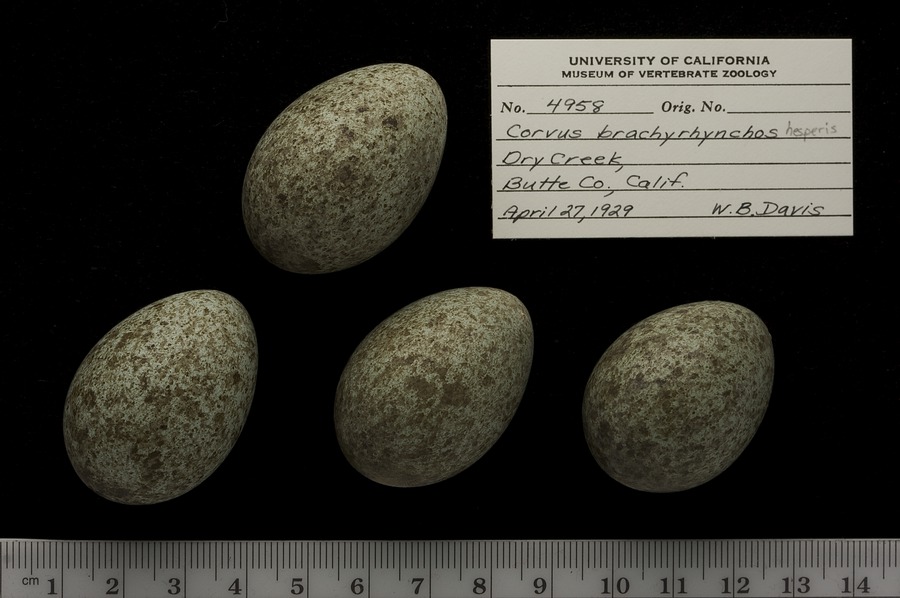 UNIVERSITY OF CALIFORNIA
MUSEUM OF VERTEBRATE ZOOLOGY
No. 4958 Orig. No.
Corvus brachyrhynchos hesperis
Dry Creek,
Butte Co., Calif.
April 27, 1929 W.B. Davis
cm 1 2 3 4 5 6 7 8 9 10 11 12 13 14